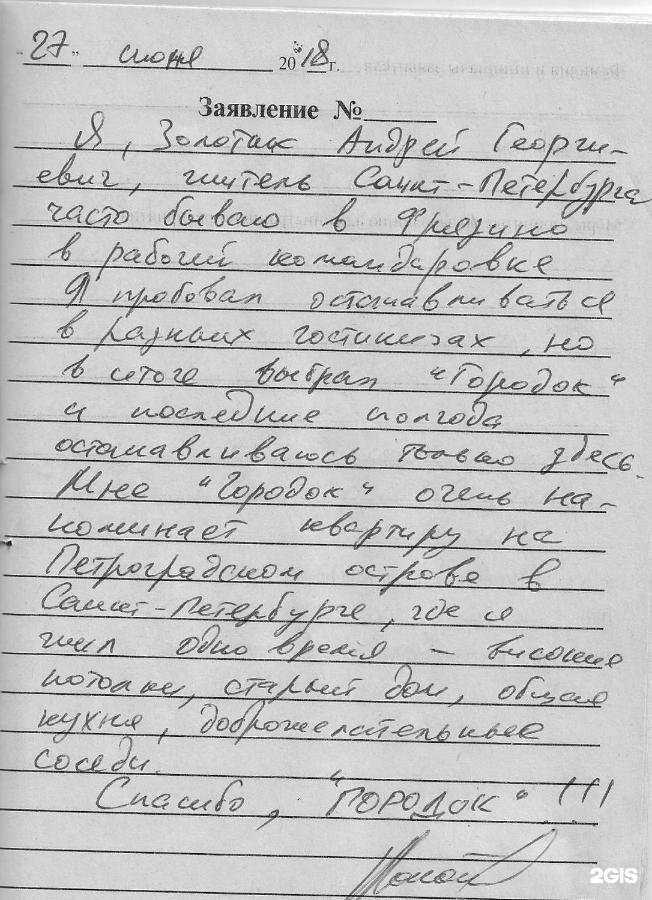 "27" июня 2018 г.
Заявление №
Я, Золотик Андрей Георги-
евич, житель Санкт-Петербурга
часто бываю в Фрязино
в рабочей командировке.
Я пробовал останавливаться
в разных гостиницах, но
в итоге выбрал "Городок"
и последние полгода
останавливаюсь только здесь.
Мне "Городок" очень на-
поминает квартиру на
Петроградском острове в
Санкт-Петербурге, где я
жил одно время – высокие
потолки, старый дом, общая
кухня, доброжелательные
соседи.
Спасибо, "ГОРОДОК"!!!
2GIS